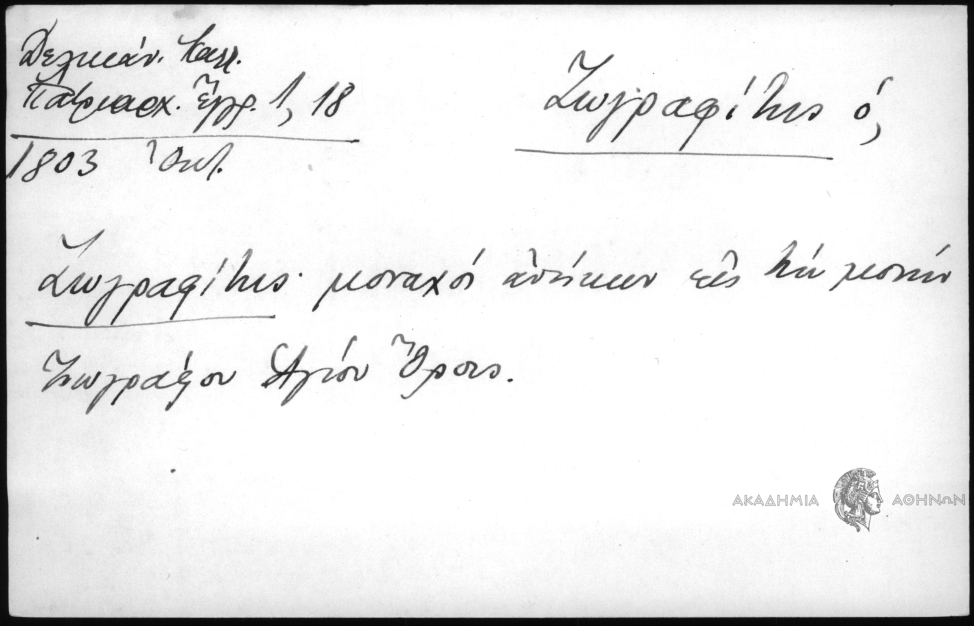 Δελικάν. Καλλ.
Πατριαρχ. Ἔγγρ. 1, 18
1803 Ὀκτ.
Ζωγραφίτης ὁ,
Ζωγραφίτης· μοναχός ἀνήκων εἰς τήν μονήν
Ζωγράφου Ἁγίου Ὄρους.
ΑΚΑΔΗΜΙΑ ΑΘΗΝΩΝ